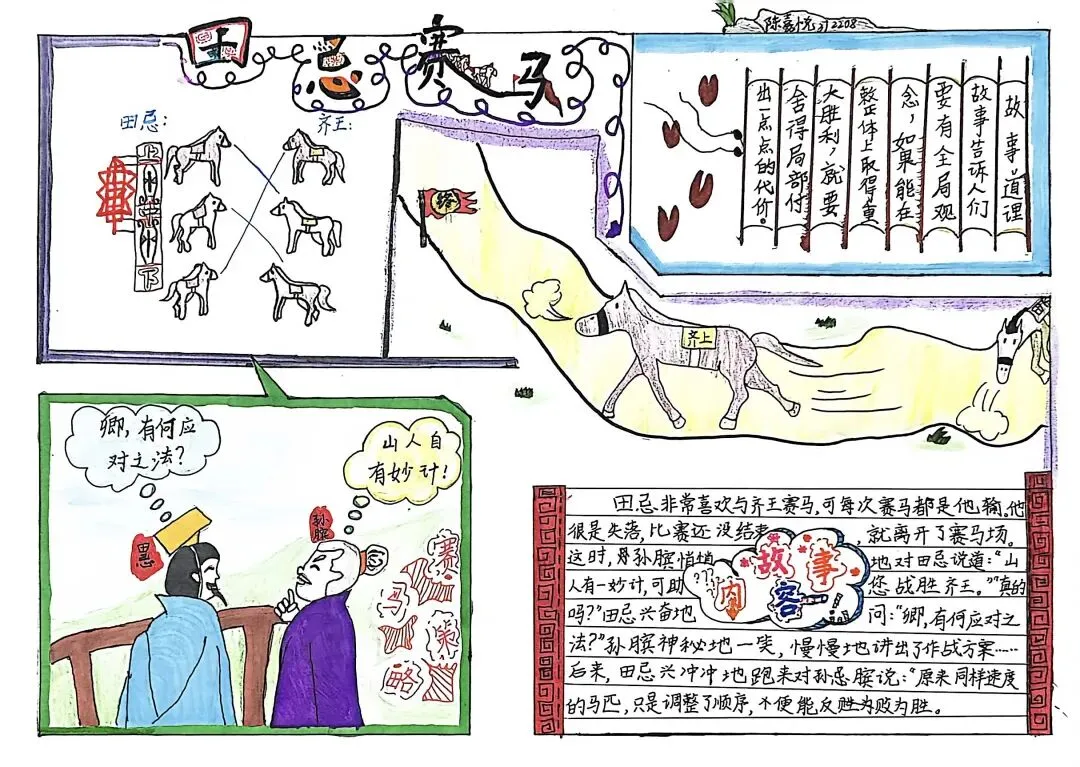 田忌赛马
陈嘉悦 2208
田忌:
齐王:
上
中
下
终
齐上
故事道理
故事告诉人们
要有全局观
念,如果能在
整体上取得重
大胜利,就要
舍得局部付
出一点点的代价。
卿,有何应
对之法?
山人自
有妙计!
田忌
孙膑
赛马策略
故事
内容
田忌非常喜欢与齐王赛马,可每次赛马都是他输。他
很是失落,比赛还没结束,就离开了赛马场。
这时,孙膑悄悄地对田忌说道:“山
人有一妙计,可助您战胜齐王。”“真的
吗?”田忌兴奋地问:“卿,有何应对之
法?”孙膑神秘地一笑,慢慢地讲出了作战方案……
后来,田忌兴冲冲地跑来对孙膑说:“原来同样速度
的马匹,只是调整了顺序,不便能反败为胜。